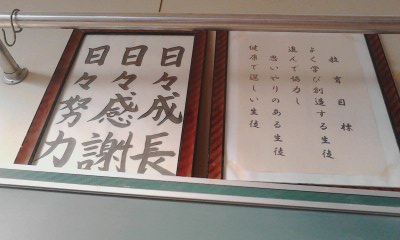 日々成長
日々感謝
日々努力
教育目標
よく学び創造する生徒
進んで協力し
思いやりのある生徒
健康で逞しい生徒